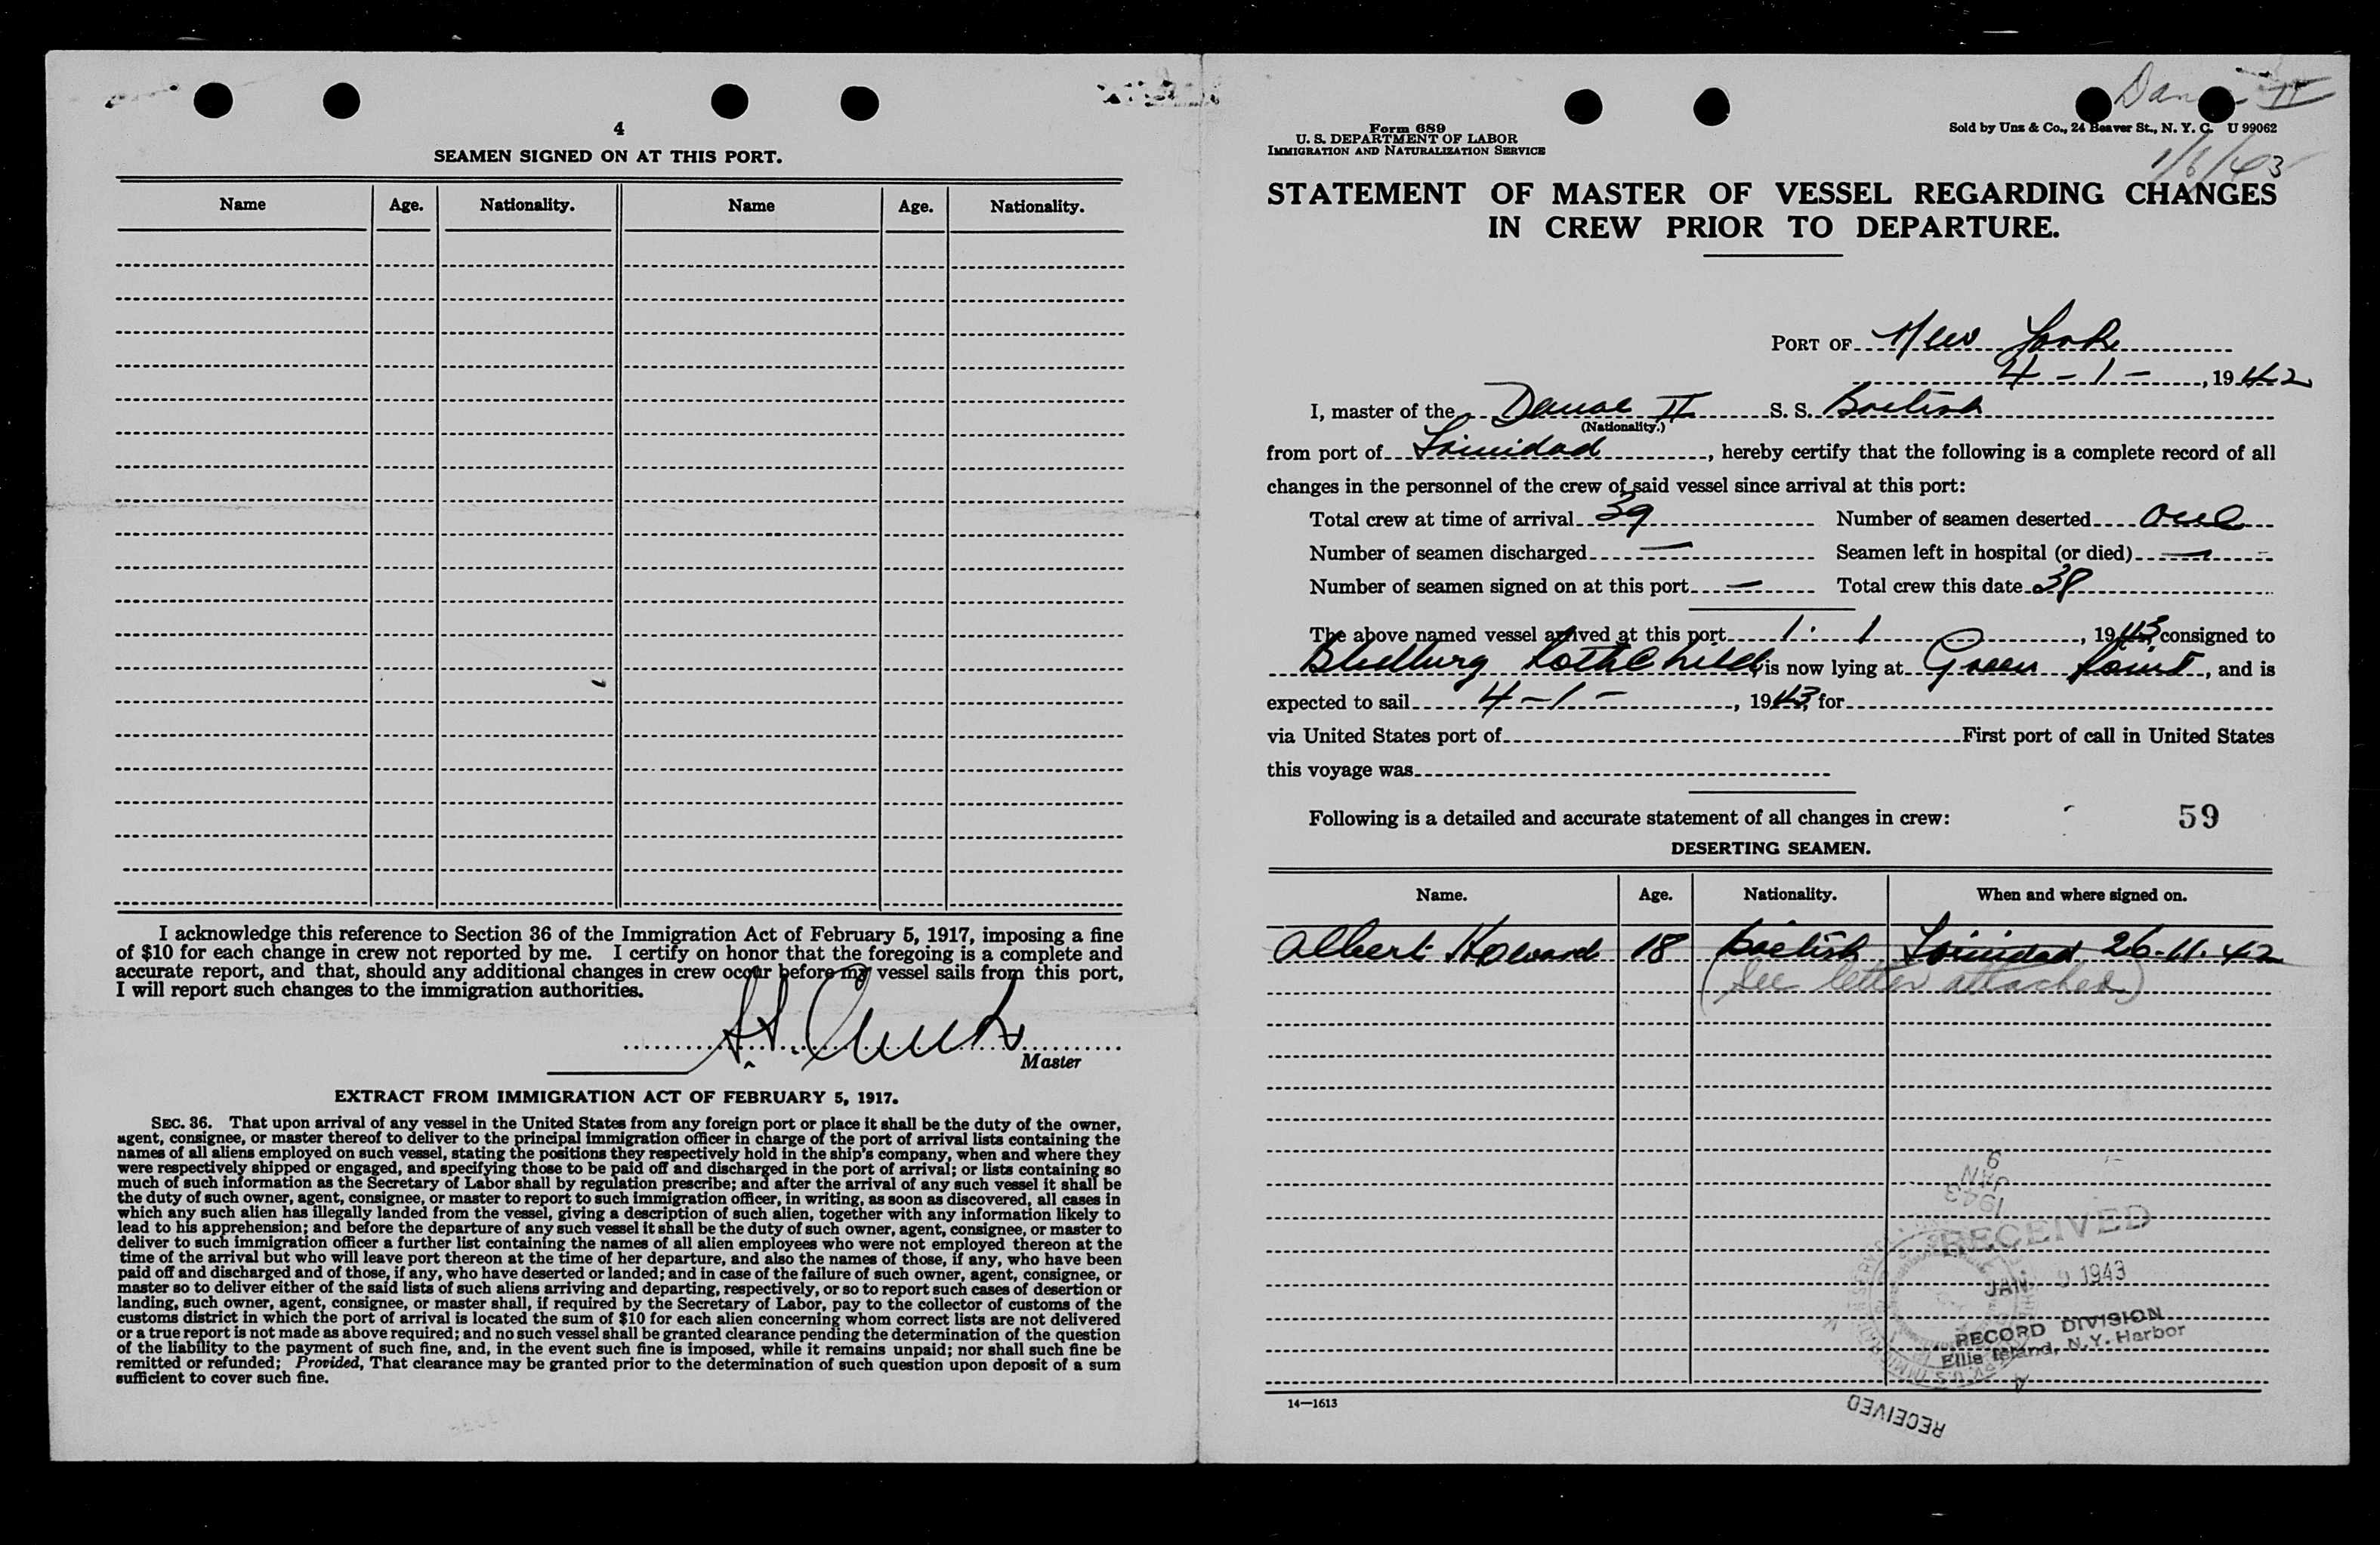 4
SEAMEN SIGNED ON AT THIS PORT.
Name Age. Nationality. Name Age. Nationality.
I acknowledge this reference to Section 36 of the Immigration Act of February 5, 1917, imposing a fine
of $10 for each change in crew not reported by me. I certify on honor that the foregoing is a complete and
accurate report, and that, should any additional changes in crew occur before my vessel sails from this port,
I will report such changes to the immigration authorities.
Master
EXTRACT FROM IMMIGRATION ACT OF FEBRUARY 5, 1917.
SEC. 36. That upon arrival of any vessel in the United States from any foreign port or place it shall be the duty of the owner,
agent, consignee, or master thereof to deliver to the principal immigration officer in charge of the port of arrival lists containing the
names of all aliens employed on such vessel, stating the positions they respectively hold in the ship's company, when and where they
were respectively shipped or engaged, and specifying those to be paid off and discharged in the port of arrival; or lists containing so
much of such information as the Secretary of Labor shall by regulation prescribe; and after the arrival of any such vessel it shall be
the duty of such owner, agent, consignee, or master to report to such immigration officer, in writing, as soon as discovered, all cases in
which any such alien has illegally landed from the vessel, giving a description of such alien, together with any information likely to
lead to his apprehension; and before the departure of any such vessel it shall be the duty of such owner, agent, consignee, or master to
deliver to such immigration officer a further list containing the names of all alien employees who were not employed thereon at the
time of the arrival but who will leave port thereon at the time of her departure, and also the names of those, if any, who have been
paid off and discharged and of those, if any, who have deserted or landed; and in case of the failure of such owner, agent, consignee, or
master so to deliver either of the said lists of such aliens arriving and departing, respectively, or so to report such cases of desertion or
landing, such owner, agent, consignee, or master shall, if required by the Secretary of Labor, pay to the collector of customs of the
customs district in which the port of arrival is located the sum of $10 for each alien concerning whom correct lists are not delivered
or a true report is not made as above required; and no such vessel shall be granted clearance pending the determination of the question
of the liability to the payment of such fine, and, in the event such fine is imposed, while it remains unpaid; nor shall such fine be
remitted or refunded; Provided, That clearance may be granted prior to the determination of such question upon deposit of a sum
sufficient to cover such fine.
Form 689
U. S. DEPARTMENT OF LABOR
IMMIGRATION AND NATURALIZATION SERVICE
Sold by Unz & Co., 24 Beaver St., N. Y. C. U 99062
1/6/43
STATEMENT OF MASTER OF VESSEL REGARDING CHANGES
IN CREW PRIOR TO DEPARTURE.
PORT OF New York
4-1-, 1942
I, master of the Danae II S. S. British
(Nationality.)
from port of Trinidad, hereby certify that the following is a complete record of all
changes in the personnel of the crew of said vessel since arrival at this port:
Total crew at time of arrival 39 Number of seamen deserted one
Number of seamen discharged — Seamen left in hospital (or died) —
Number of seamen signed on at this port — Total crew this date 38
The above named vessel arrived at this port 1. 1, 1943, consigned to
is now lying at Green Point, and is
expected to sail 4-1-, 1943, for
via United States port of First port of call in United States
this voyage was
Following is a detailed and accurate statement of all changes in crew: 59
DESERTING SEAMEN.
Name. Age. Nationality. When and where signed on.
Albert Howard 18 British Trinidad 26-11-42
(See letter attached)
JAN 9 1943
RECEIVED
JAN 9 1943
RECORD DIVISION
Ellis Island, N.Y. Harbor
14—1613
RECEIVED